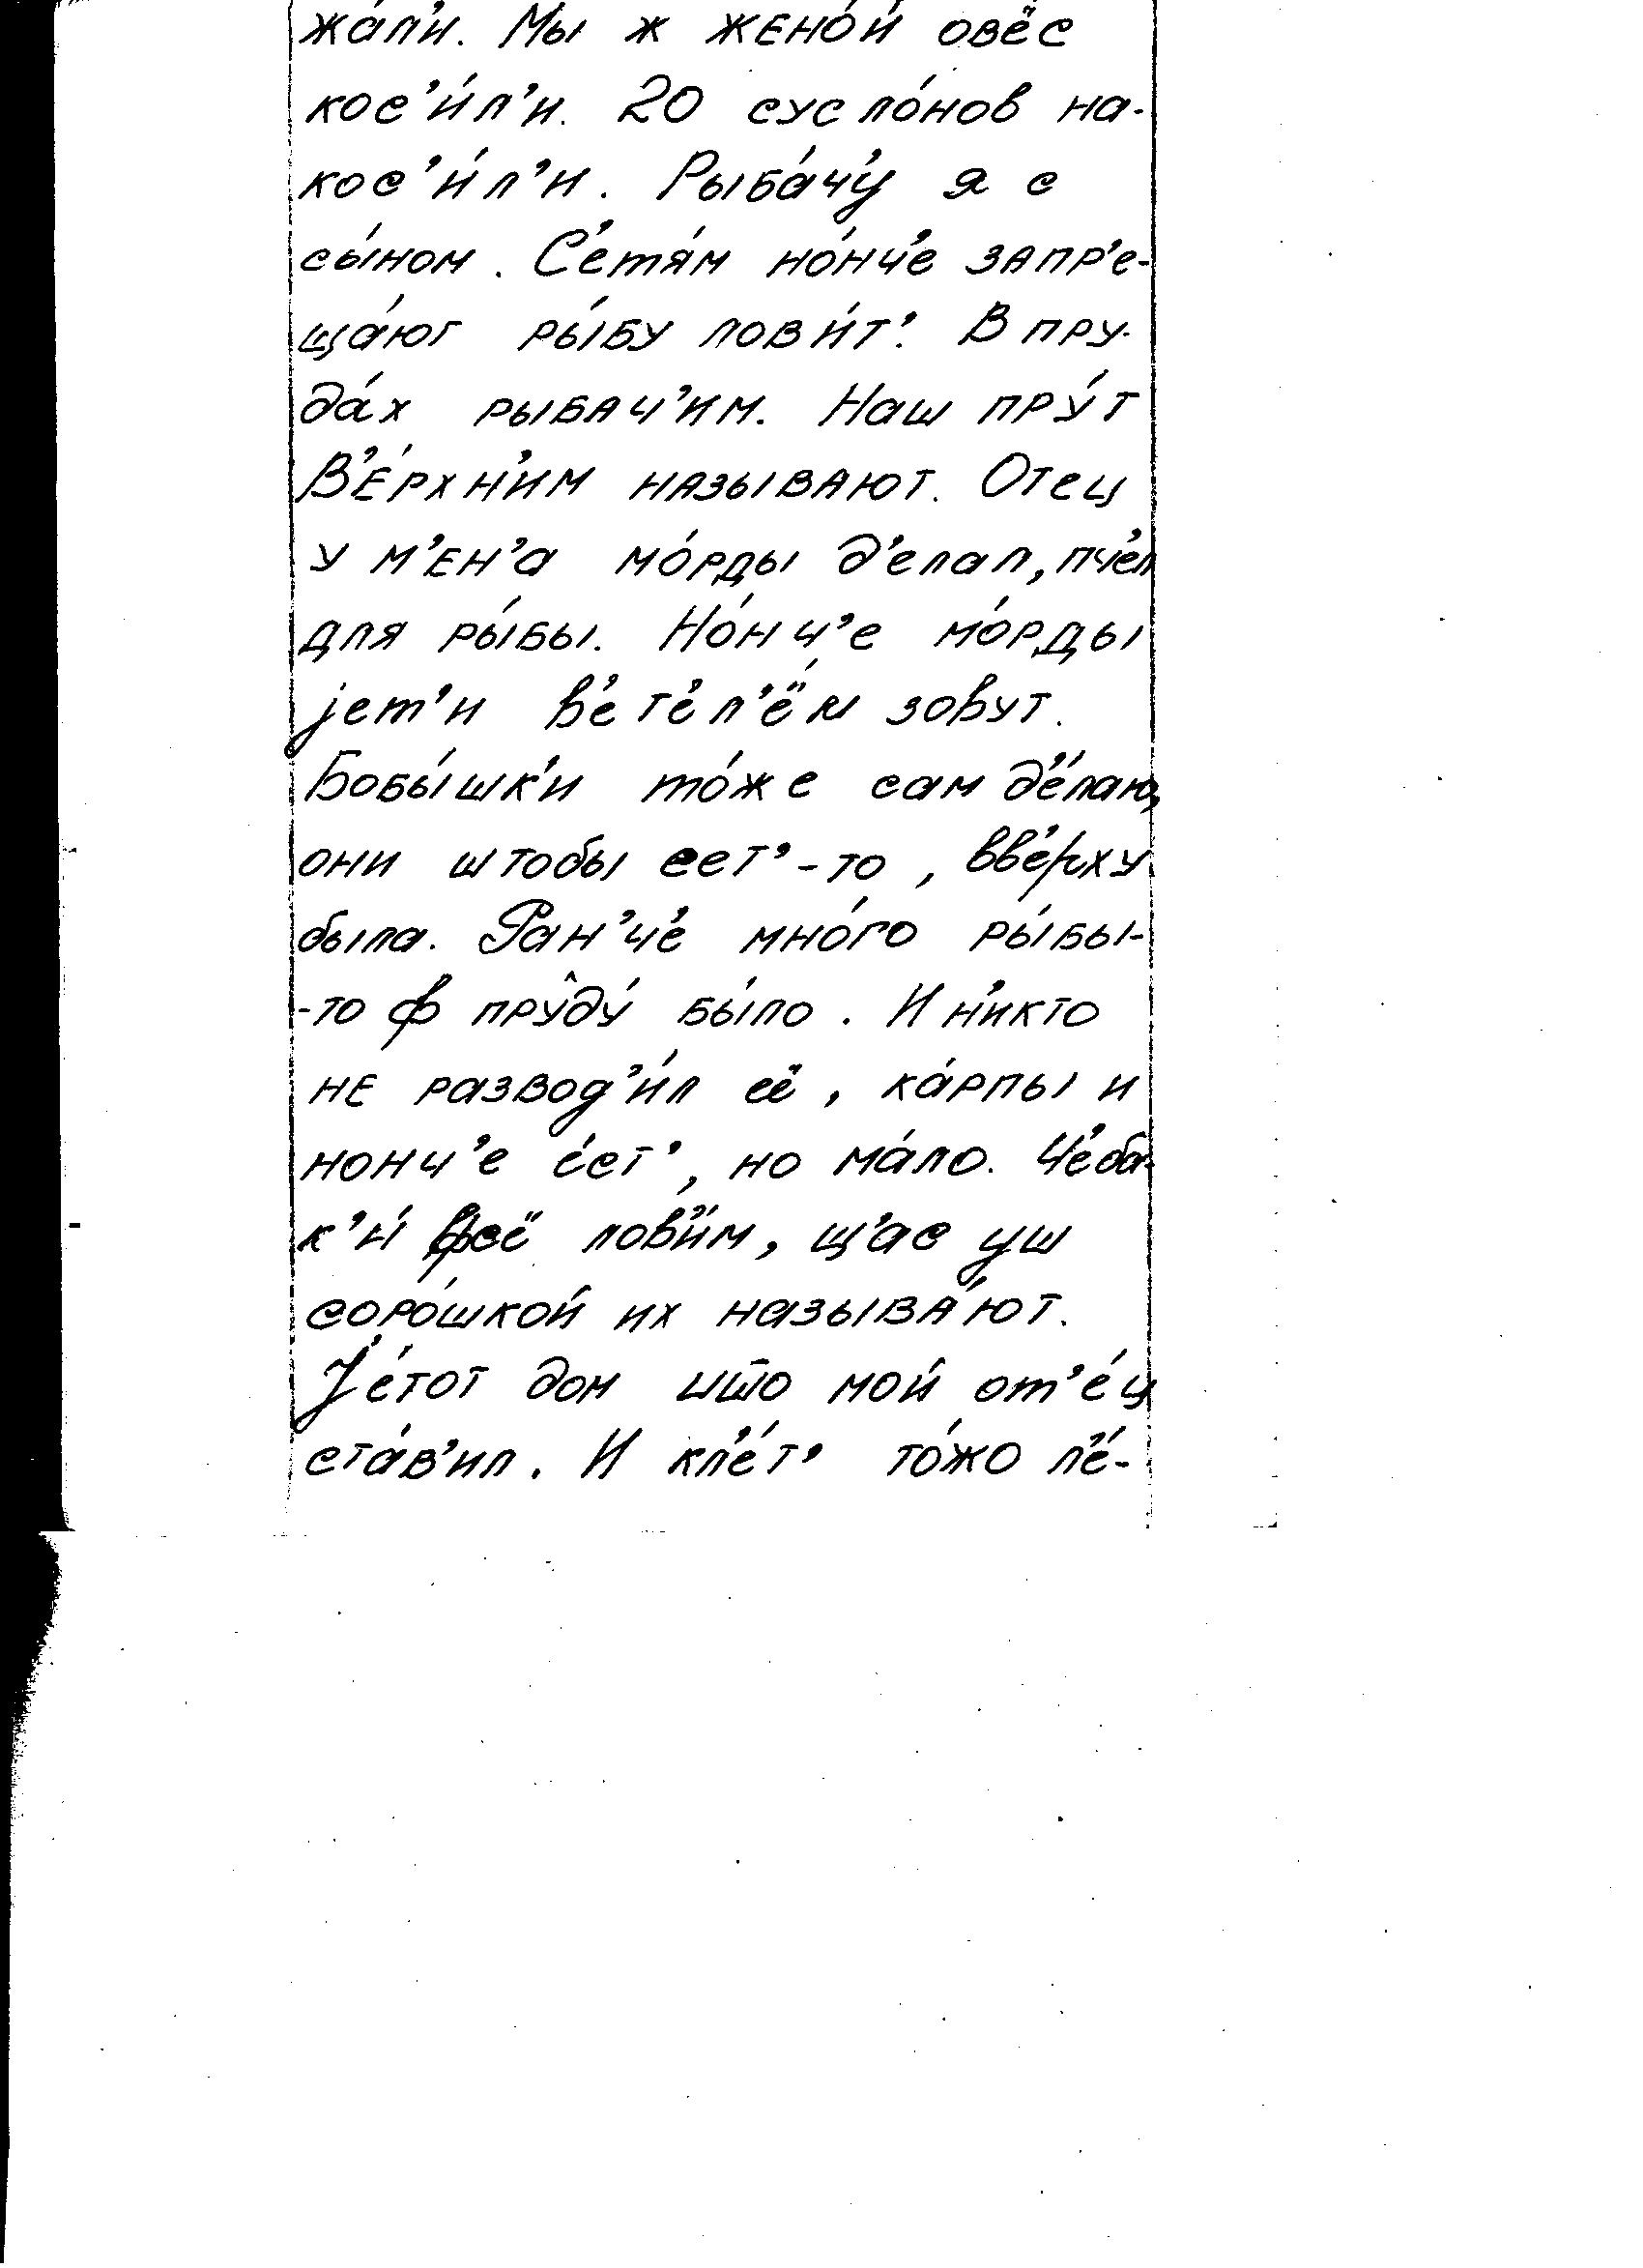 жа́л'и. Мы ж жено́й овёс
кос'и́л'и. 20 сусло́нов на-
кос'и́л'и. Рыба́ч'у я с
сы́ном. С'етя́м но́нч'е запр'е-
ща́ют ры́бу лови́т'. В пру-
да́х рыбач'им. Наш пру́т
В'е́рхн'им называют. Отец
у м'ен'а мо́рды д'елал, пч'ел
для ры́бы. Но́нч'е мо́рды
jет'и в'ет'ел'ём зовут.
Бобы́шк'и то́же сам д'е́лаю,
они штобы сет'-то, вв'ерху
была. Ран'ч'е мно́го ры́бы-
-то ф пру̂ду́ бы́ло. И н'икто
не развод'и́л её, ка́рпы и
нонч'е е́ст', но ма́ло. Ч'еба-
к'и́ всё лов'им, щ'ас уш
соро́шкой их называ́ют.
J'е́тот дом што мой от'е́ц
ста́в'ил. И кл'е́т' то́жо л'е́-